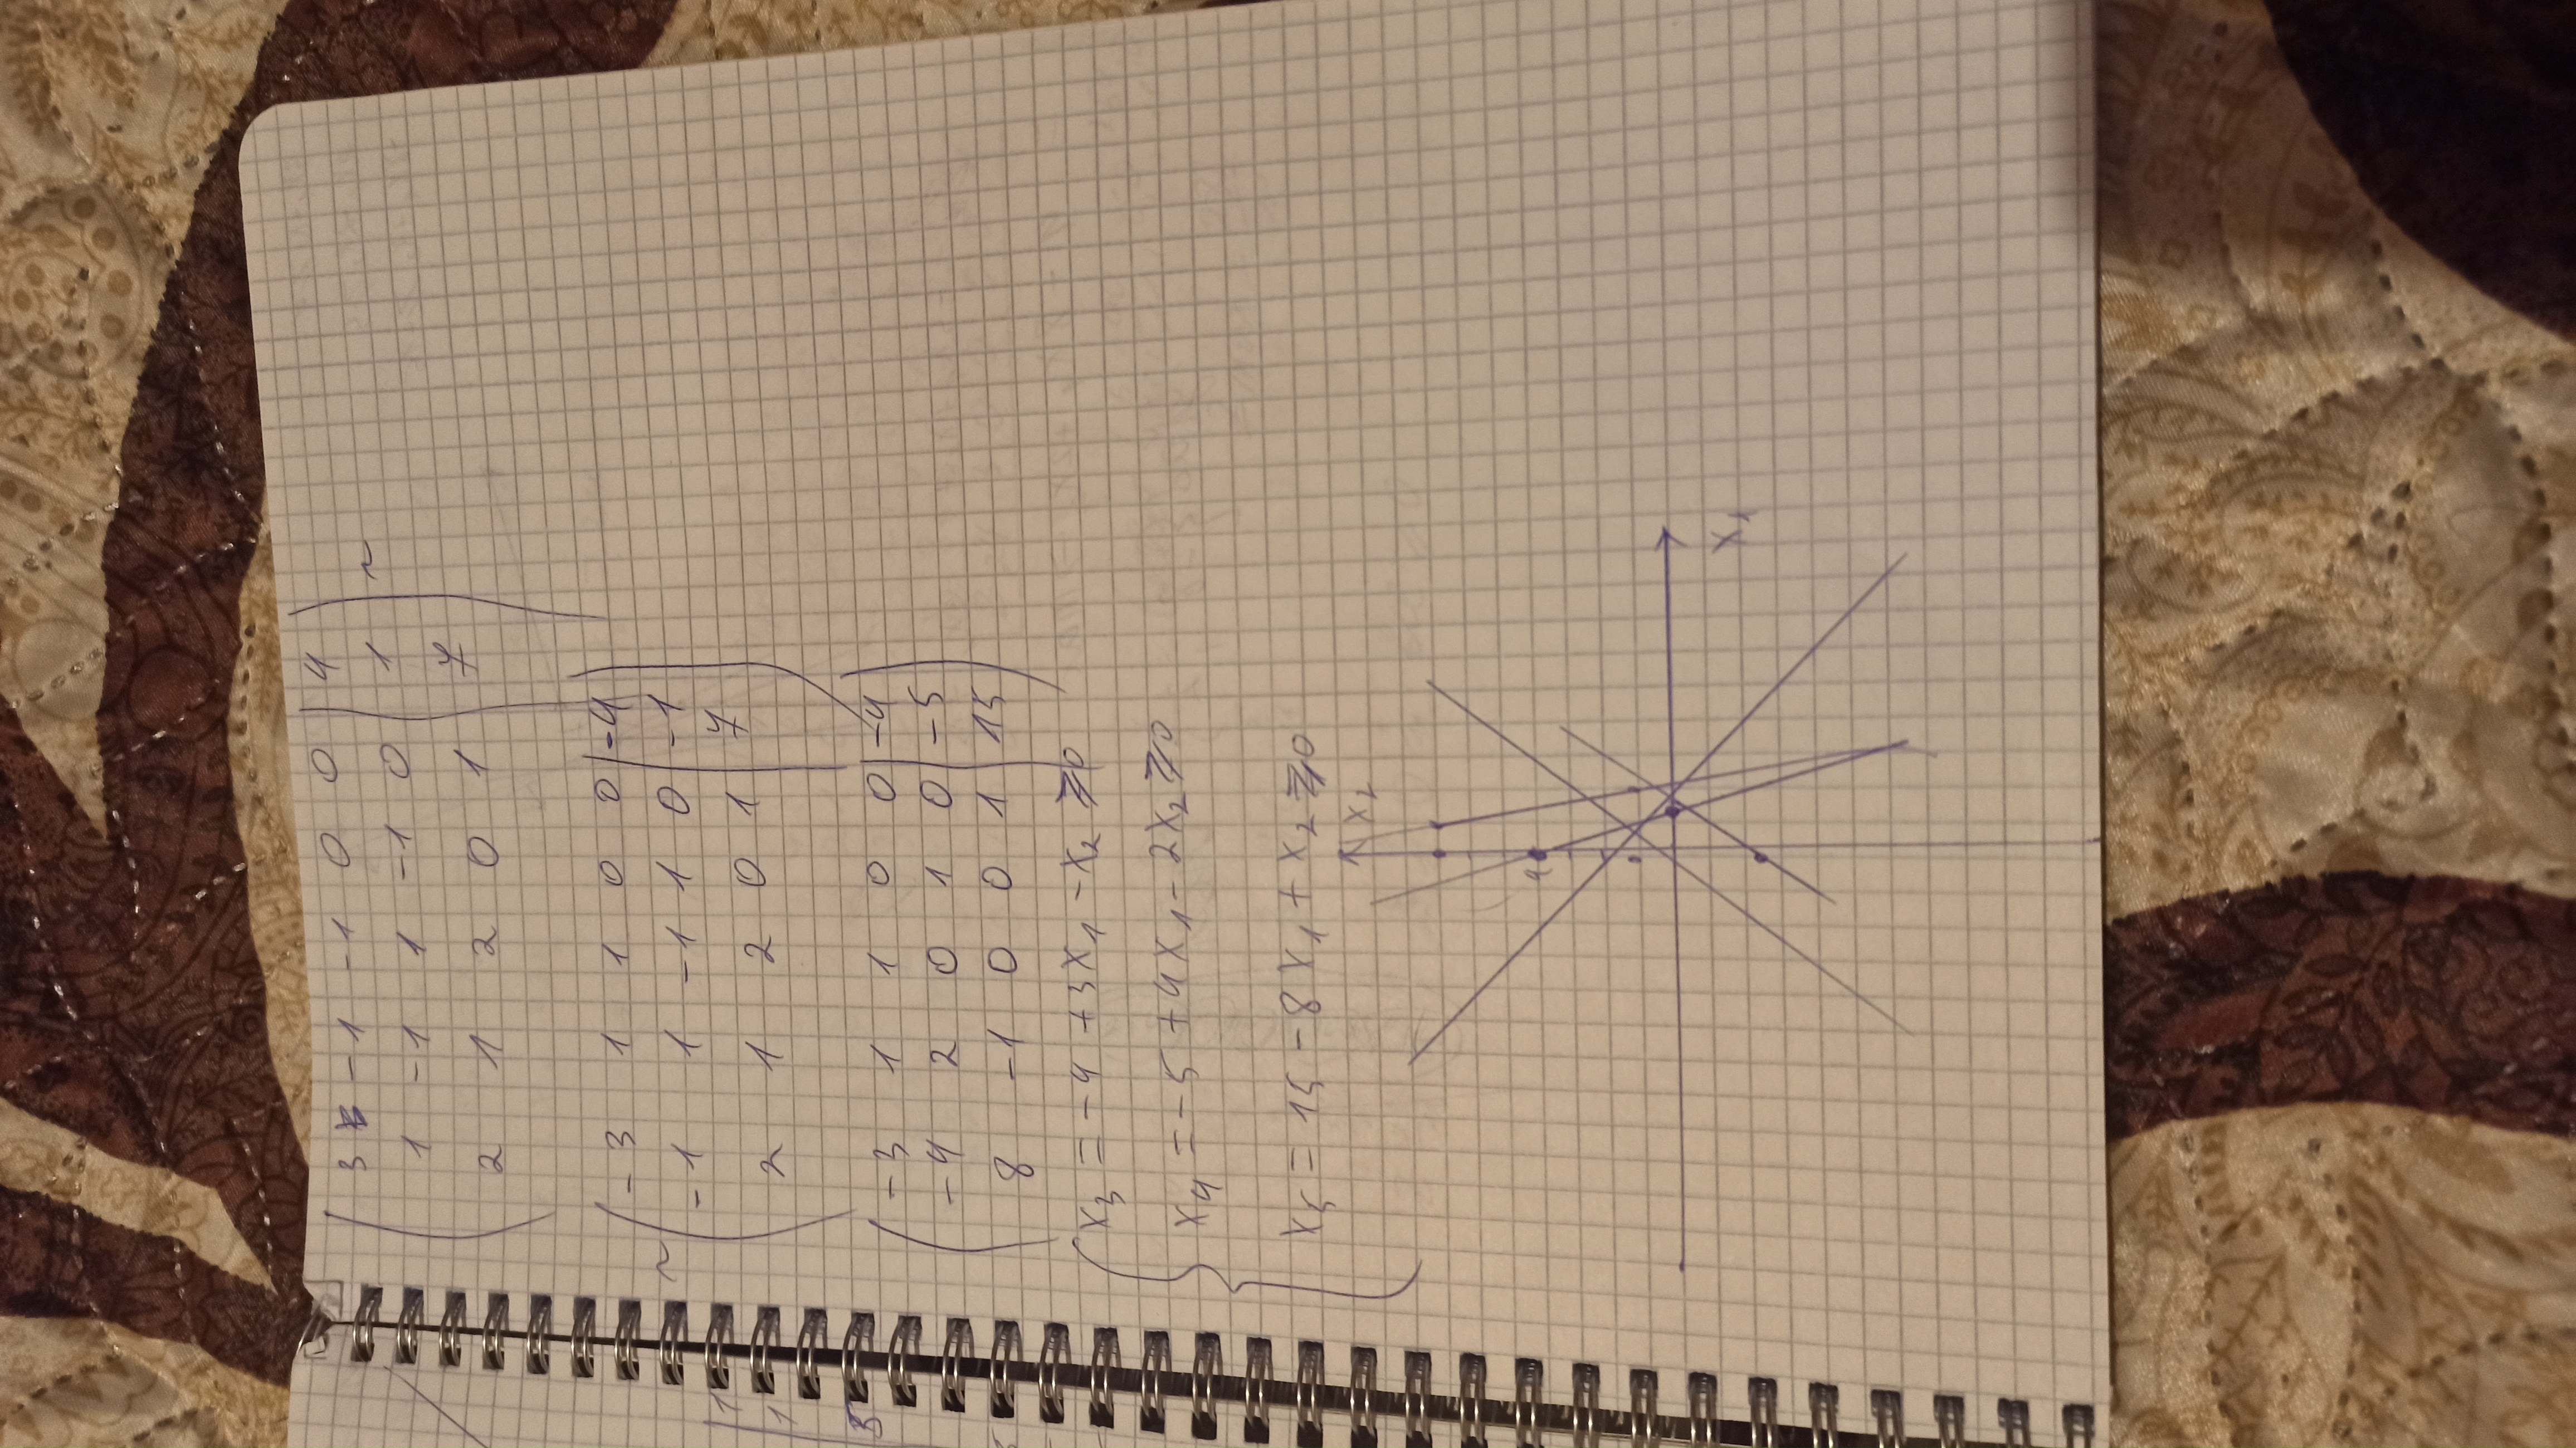 3 -1 -1 0 0 | 4
1 -1 1 -1 0 | 1 ~
2 1 2 0 1 | 7
-3 1 1 0 0 | -4
~ -1 1 -1 1 0 | -1
2 1 2 0 1 | 7
-3 1 1 0 0 | -4
-4 2 0 1 0 | -5
8 -1 0 0 1 | 15
x₃ = -4 + 3x₁ - x₂ ⩾ 0
x₄ = -5 + 4x₁ - 2x₂ ⩾ 0
x₅ = 15 - 8x₁ + x₂ ⩾ 0
x₂
4
x₁